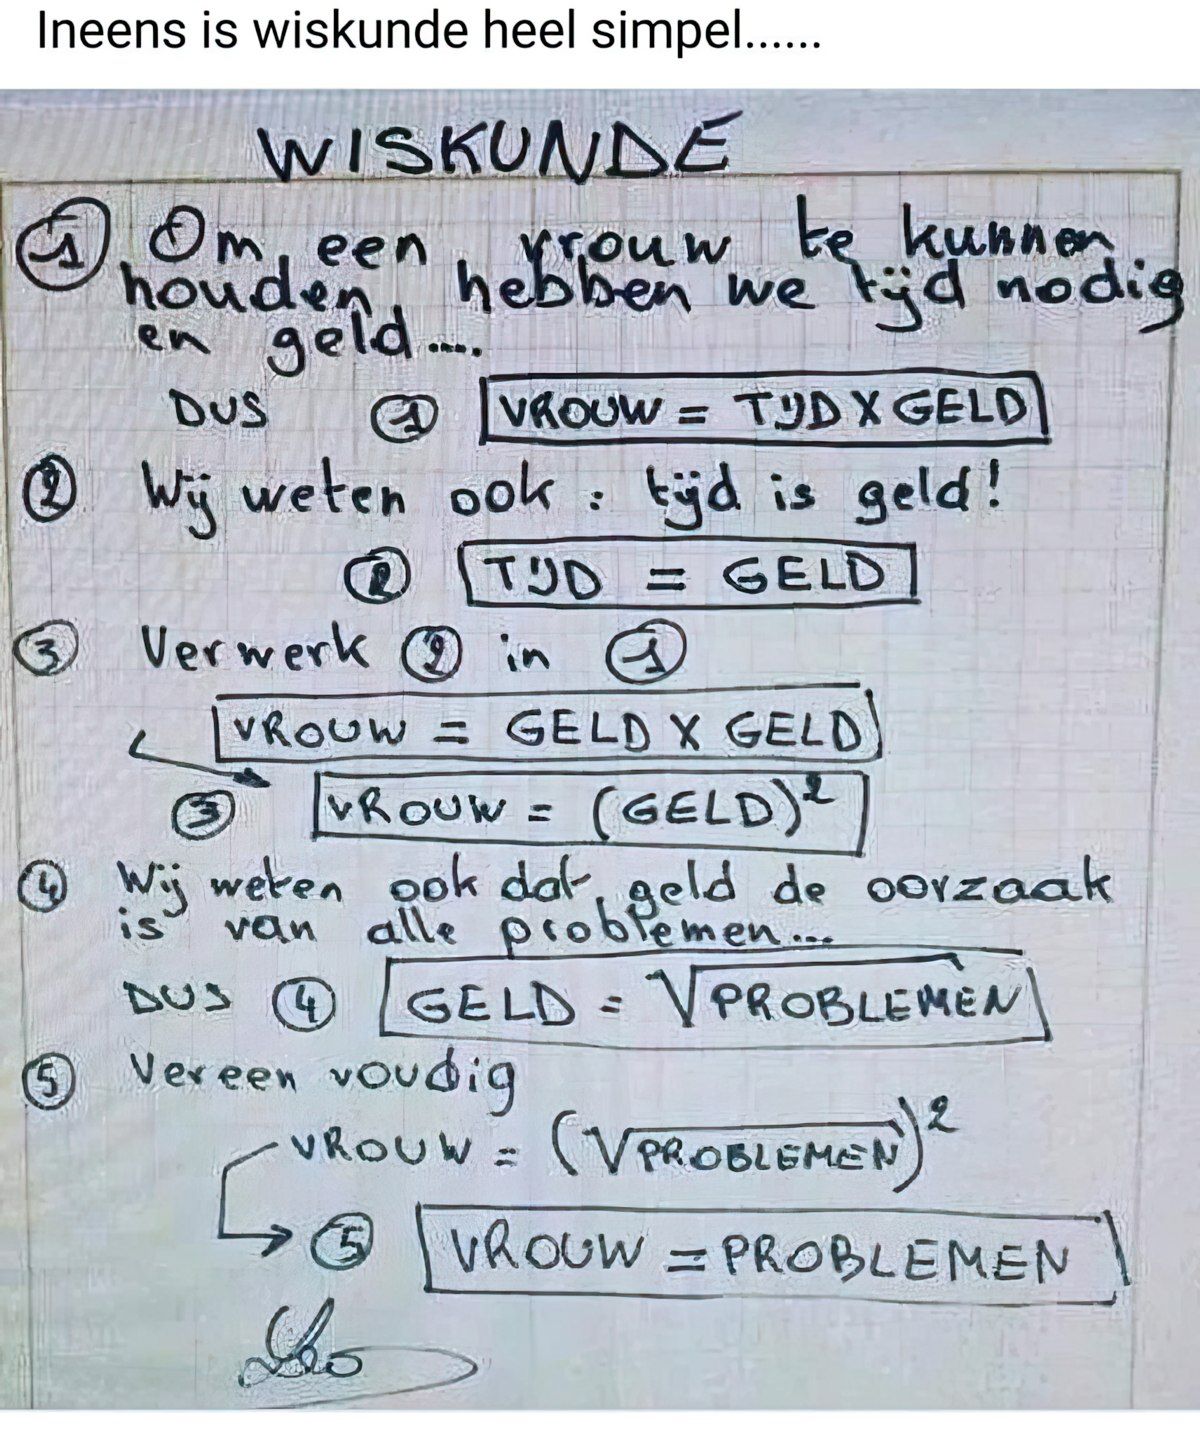 Ineens is wiskunde heel simpel......
WISKUNDE
1 Om een vrouw te kunnen
houden hebben we tijd nodig
en geld....
DUS 1 VROUW = TIJD X GELD
2 Wij weten ook : tijd is geld!
2 TIJD = GELD
3 Verwerk 2 in 1
VROUW = GELD X GELD
3 VROUW = (GELD)²
4 Wij weten ook dat geld de oorzaak
is van alle problemen...
DUS 4 GELD = √PROBLEMEN
5 Vereenvoudig
VROUW = (√PROBLEMEN)²
5 VROUW = PROBLEMEN